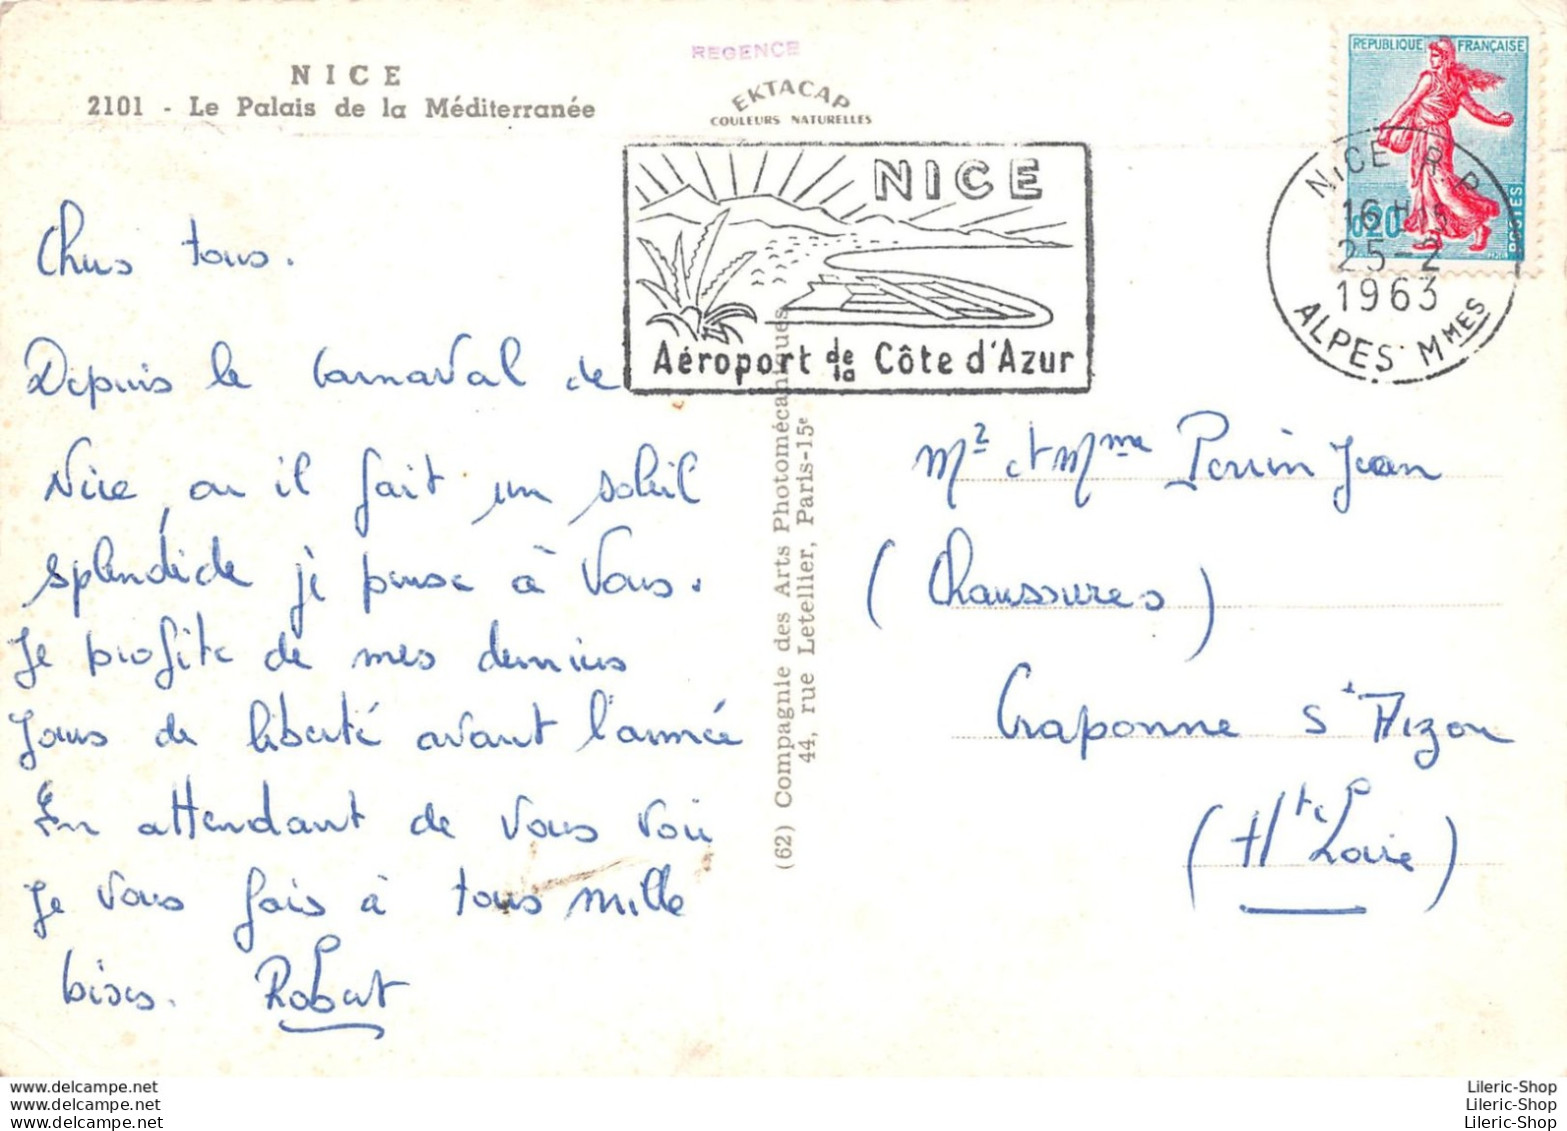 NICE
2101 - Le Palais de la Méditerranée
REGENCE
EKTACAP
COULEURS NATURELLES
REPUBLIQUE FRANÇAISE
0,20
POSTES
NICE R.P.
16 H 15
25-2
1963
ALPES Mmes
NICE
Aéroport de la Côte d'Azur
Chers tous.
Depuis le Carnaval de
Nice ou il fait un soleil
splendide je pense à vous.
Je profite de mes derniers
Jours de liberté avant l'armée
En attendant de vous voir
Je vous fais à tous mille
bises. Robert
(62) Compagnie des Arts Photomécaniques
44, rue Letellier, Paris-15e
Mr et Mme Perrin Jean
(Chaussures)
Craponne s/ Arzon
(Hte Loire)
www.delcampe.net
www.delcampe.net
www.delcampe.net
Lileric-Shop
Lileric-Shop
Lileric-Shop